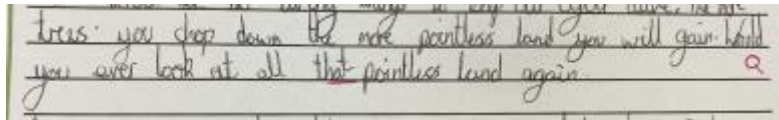 trees. you chop down the more pointless land you will gain. Would
you ever look at all that pointless land again.